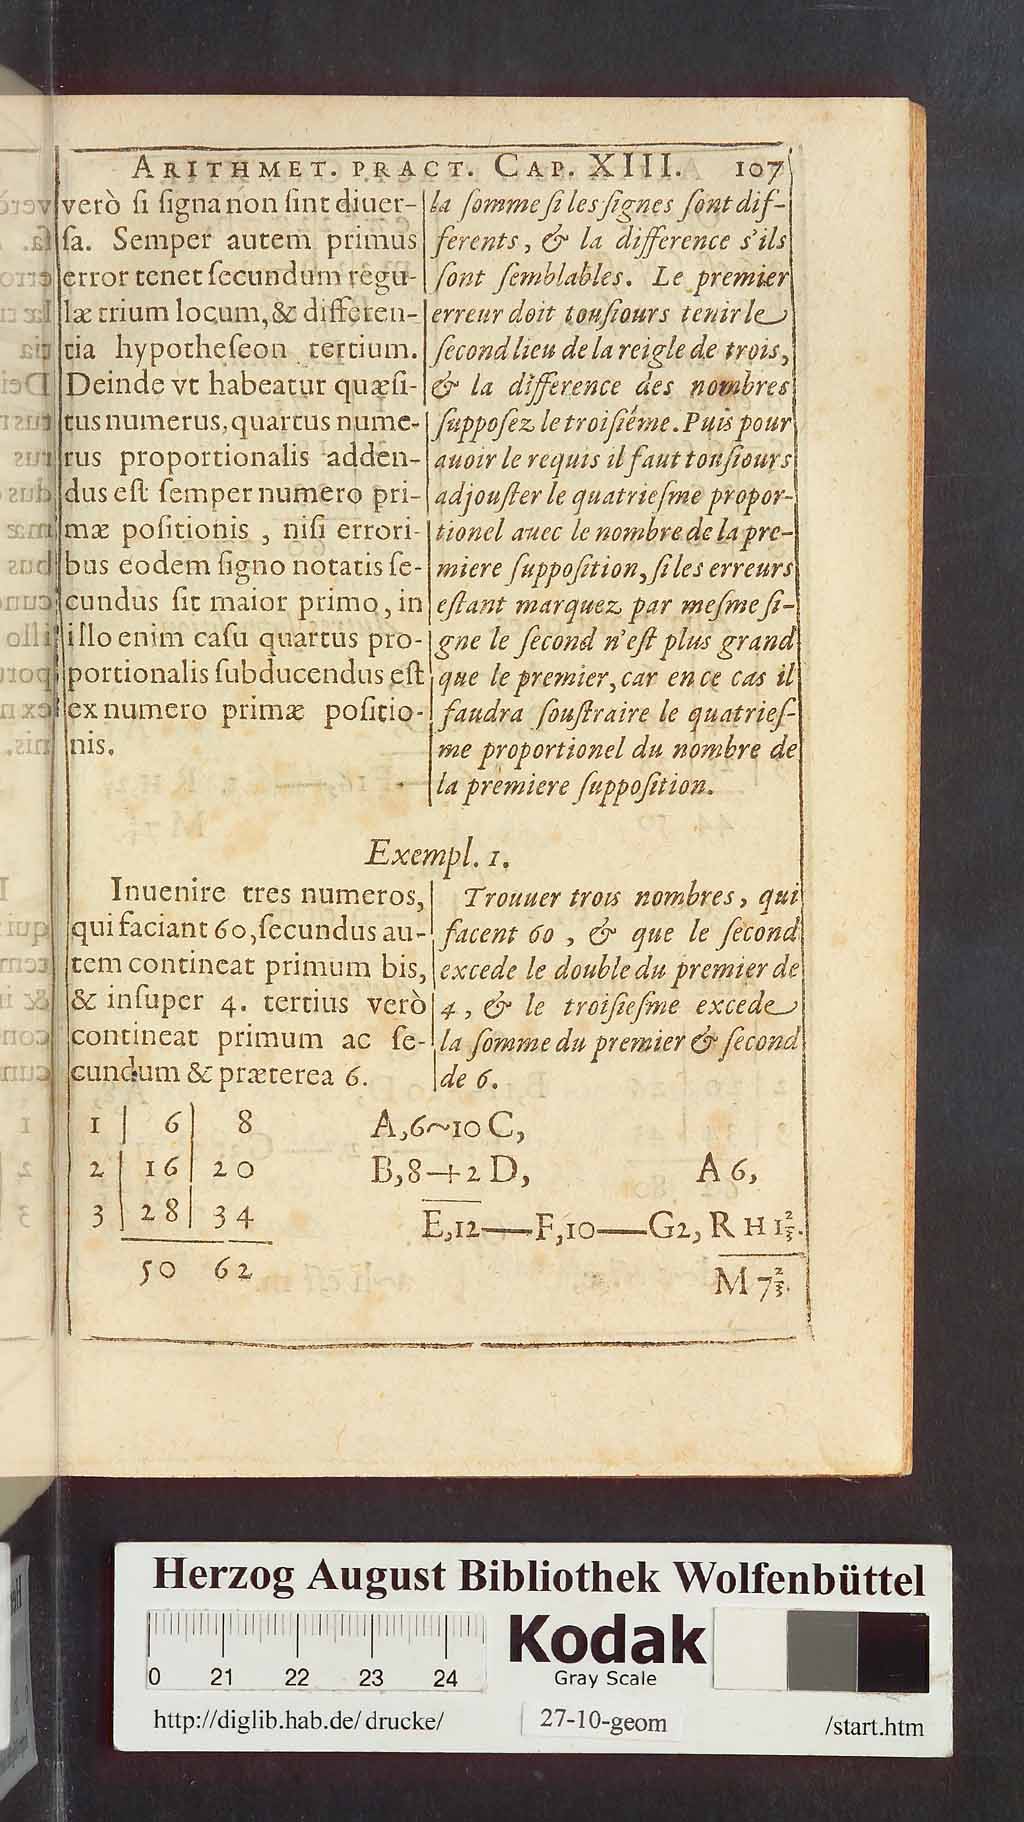 ARITHMET. PRACT. CAP. XIII. 107
verò ſi ſigna non ſint diuer-
ſa. Semper autem primus
error tenet ſecundum regu-
læ trium locum, & differen-
tia hypotheſeon tertium.
Deinde vt habeatur quæſi-
tus numerus, quartus nume-
rus proportionalis adden-
dus eſt ſemper numero pri-
mæ poſitionis, niſi errori-
bus eodem ſigno notatis ſe-
cundus ſit maior primo, in
illo enim caſu quartus pro-
portionalis ſubducendus eſt
ex numero primæ poſitio-
nis.
la ſomme ſi les ſignes ſont dif-
ferents, & la difference s'ils
ſont ſemblables. Le premier
erreur doit touſiours tenir le
ſecond lieu de la reigle de trois,
& la difference des nombres
ſuppoſez le troiſiéme. Puis pour
auoir le requis il faut touſiours
adjouſter le quatrieſme propor-
tionel auec le nombre de la pre-
miere ſuppoſition, ſi les erreurs
eſtant marquez par meſme ſi-
gne le ſecond n'eſt plus grand
que le premier, car en ce cas il
faudra ſouſtraire le quatrieſ-
me proportionel du nombre de
la premiere ſuppoſition.
Exempl. 1.
Inuenire tres numeros,
qui faciant 60, ſecundus au-
tem contineat primum bis,
& inſuper 4. tertius verò
contineat primum ac ſe-
cundum & præterea 6.
Trouuer trois nombres, qui
facent 60, & que le ſecond
excede le double du premier de
4, & le troiſieſme excede
la ſomme du premier & ſecond
de 6.
1 | 6 | 8
2 | 16 | 20
3 | 28 | 34
50 62
A,6~10 C,
B,8—+2 D, A 6,
E,12——F,10——G2, R H 1⅔.
M 7⅔.
Herzog August Bibliothek Wolfenbüttel
0 21 22 23 24
Kodak
Gray Scale
http://diglib.hab.de/drucke/ 27-10-geom /start.htm